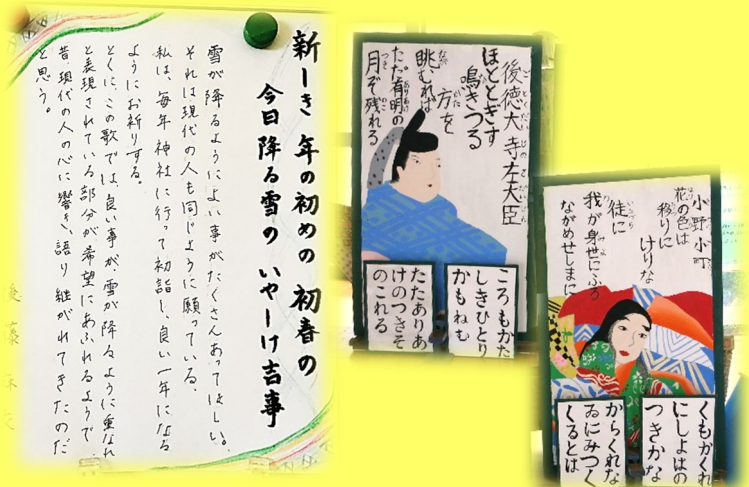 新しき 年の初めの 初春の
今日降る雪の いやしけ吉事
雪が降るようによい事がたくさんあってほしい。
それは現代の人も同じように願っている。
私は、毎年神社に行って初詣し、良い一年になる
ようにお祈りする。
とくに、この歌では、良い事が、雪が降るように重なれ
と表現されている部分が希望にあふれるようで、
昔、現代の人の心に響き、語り継がれてきたのだ
と思う。
後徳大寺左大臣
ほととぎす
鳴きつる
方を
眺むれば
ただ有明の
月ぞ残れる
ころもかた
しきひとり
かもねむ
たたありあ
けのつきそ
のこれる
小野小町
花の色は
移りに
けりな
徒に
我が身世にふる
ながめせしまに
くもかくれ
にしよはの
つきかな
からくれな
ゐにみつく
くるとは